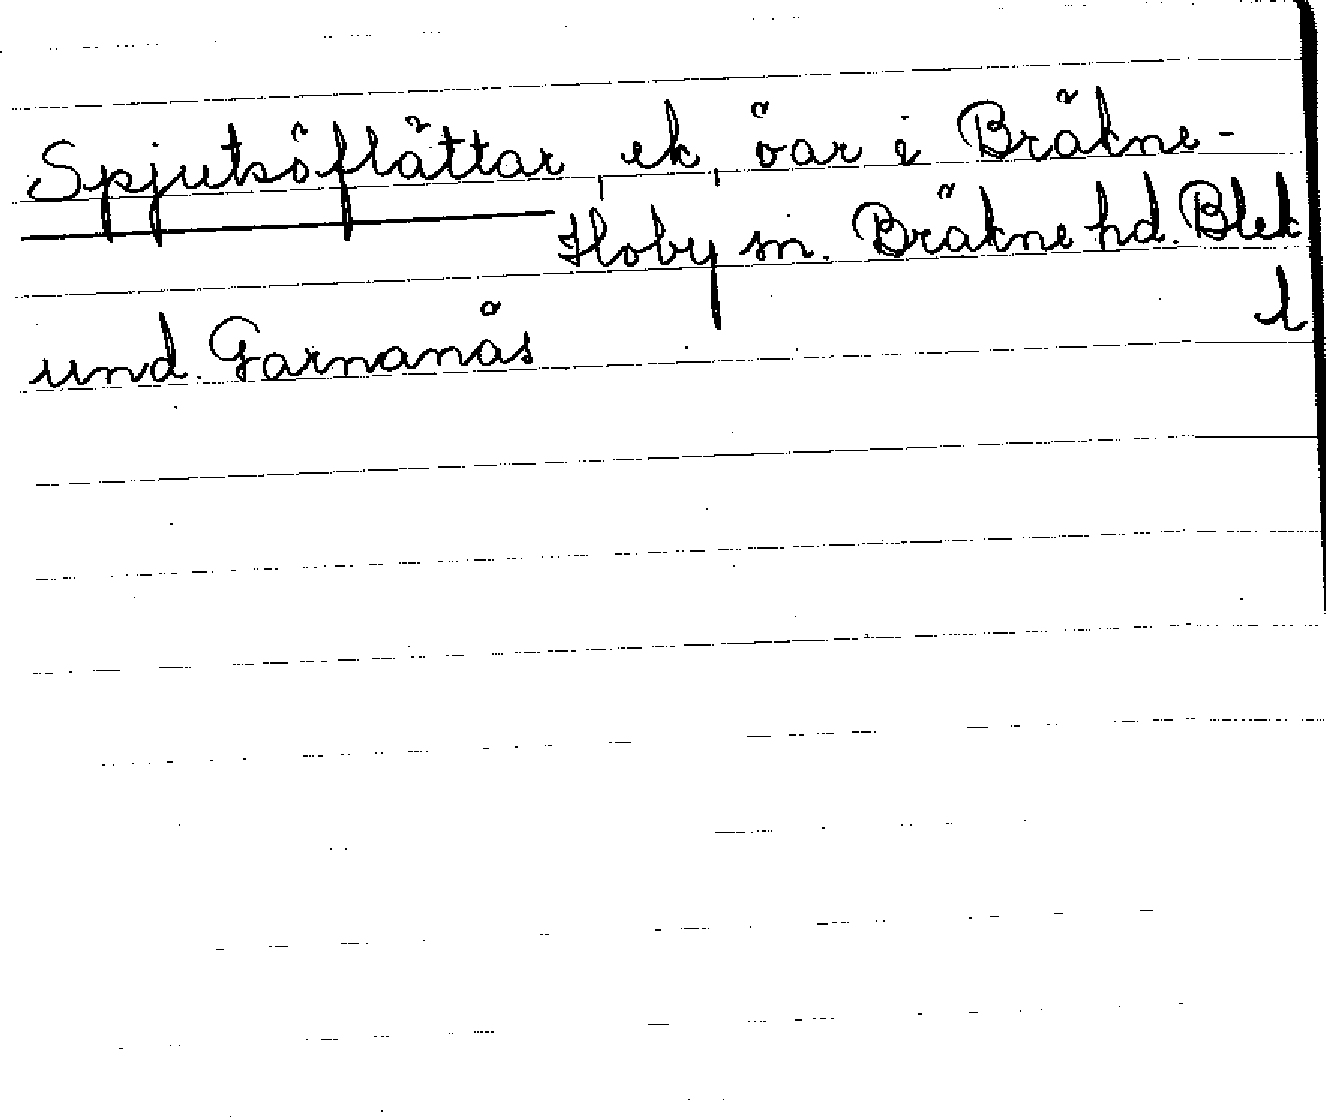 Spjutsöflättar, ek, öar i Bräkne-
Hoby sn. Bräkne hd. Blek
l
und. Garnanäs